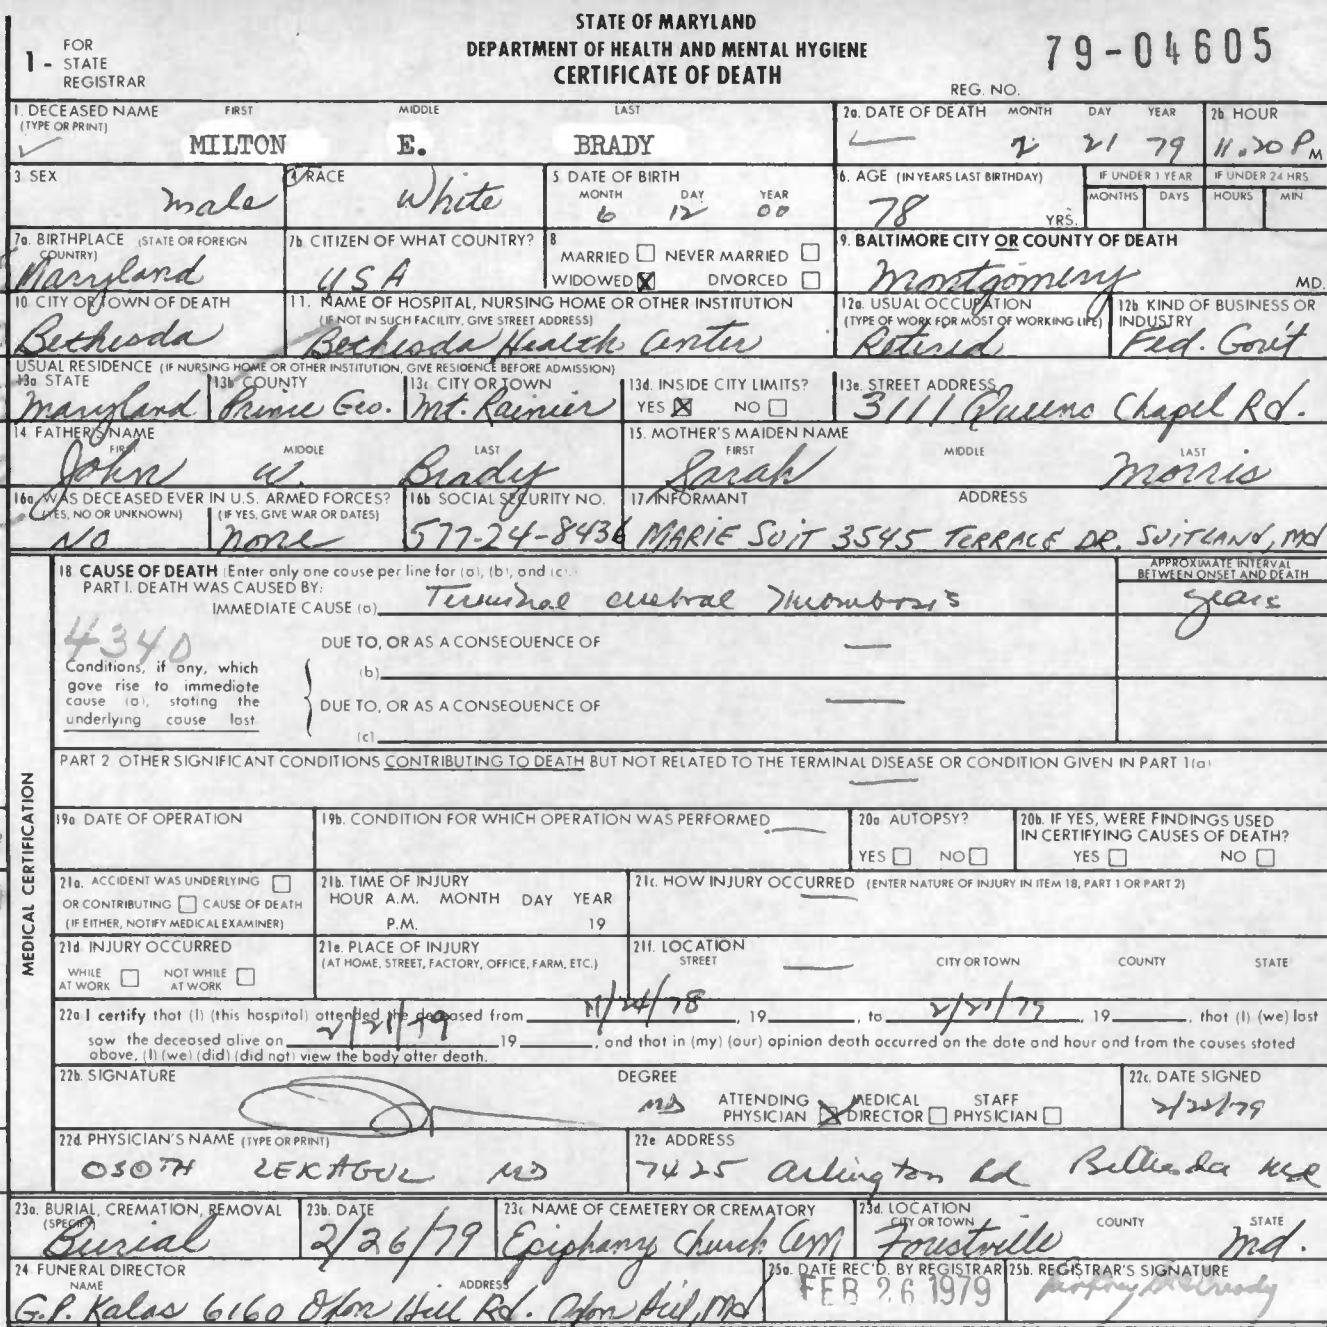 STATE OF MARYLAND
DEPARTMENT OF HEALTH AND MENTAL HYGIENE
CERTIFICATE OF DEATH
1 - FOR STATE REGISTRAR
79-04605
REG. NO.
1. DECEASED NAME FIRST MIDDLE LAST
(TYPE OR PRINT)
MILTON E. BRADY
2a. DATE OF DEATH MONTH DAY YEAR
2 21 79
2b HOUR
11.20 P M
3 SEX
male
4 RACE
White
5 DATE OF BIRTH
MONTH DAY YEAR
6 12 00
6. AGE (IN YEARS LAST BIRTHDAY)
78 YRS.
IF UNDER 1 YEAR
MONTHS DAYS
IF UNDER 24 HRS
HOURS MIN
7a. BIRTHPLACE (STATE OR FOREIGN COUNTRY)
Maryland
7b CITIZEN OF WHAT COUNTRY?
USA
8
MARRIED NEVER MARRIED
WIDOWED X DIVORCED
9. BALTIMORE CITY OR COUNTY OF DEATH
Montgomery MD.
10 CITY OR TOWN OF DEATH
Bethesda
11. NAME OF HOSPITAL, NURSING HOME OR OTHER INSTITUTION
(IF NOT IN SUCH FACILITY, GIVE STREET ADDRESS)
Bethesda Health Center
12a. USUAL OCCUPATION
(TYPE OF WORK FOR MOST OF WORKING LIFE)
Retired
12b KIND OF BUSINESS OR INDUSTRY
Fed. Gov't
USUAL RESIDENCE (IF NURSING HOME OR OTHER INSTITUTION, GIVE RESIDENCE BEFORE ADMISSION)
13a STATE
Maryland
13b COUNTY
Prince Geo.
13c CITY OR TOWN
Mt. Rainier
13d. INSIDE CITY LIMITS?
YES X NO
13e. STREET ADDRESS
3111 Queens Chapel Rd.
14 FATHER'S NAME
FIRST MIDDLE LAST
John W. Brady
15. MOTHER'S MAIDEN NAME
FIRST MIDDLE LAST
Sarah Morris
16a WAS DECEASED EVER IN U.S. ARMED FORCES?
(YES, NO OR UNKNOWN) (IF YES, GIVE WAR OR DATES)
NO none
16b SOCIAL SECURITY NO.
577-24-8436
17 INFORMANT ADDRESS
MARIE SUIT 3545 TERRACE DR. SUITLAND, Md
MEDICAL CERTIFICATION
18 CAUSE OF DEATH (Enter only one cause per line for (a), (b), and (c).
PART I. DEATH WAS CAUSED BY:
IMMEDIATE CAUSE (a) Terminal cerebral Thrombosis
APPROXIMATE INTERVAL
BETWEEN ONSET AND DEATH
years
4340
Conditions, if any, which
gave rise to immediate
cause (a), stating the
underlying cause last
DUE TO, OR AS A CONSEQUENCE OF
(b)
DUE TO, OR AS A CONSEQUENCE OF
(c)
PART 2 OTHER SIGNIFICANT CONDITIONS CONTRIBUTING TO DEATH BUT NOT RELATED TO THE TERMINAL DISEASE OR CONDITION GIVEN IN PART 1(a)
19a DATE OF OPERATION
19b. CONDITION FOR WHICH OPERATION WAS PERFORMED
20a AUTOPSY?
YES NO
20b. IF YES, WERE FINDINGS USED
IN CERTIFYING CAUSES OF DEATH?
YES NO
21a. ACCIDENT WAS UNDERLYING
OR CONTRIBUTING CAUSE OF DEATH
(IF EITHER, NOTIFY MEDICAL EXAMINER)
21b. TIME OF INJURY
HOUR A.M. MONTH DAY YEAR
P.M. 19
21c. HOW INJURY OCCURRED (ENTER NATURE OF INJURY IN ITEM 18, PART 1 OR PART 2)
21d INJURY OCCURRED
WHILE AT WORK NOT WHILE AT WORK
21e. PLACE OF INJURY
(AT HOME, STREET, FACTORY, OFFICE, FARM, ETC.)
21f. LOCATION
STREET CITY OR TOWN COUNTY STATE
22a I certify that (I) (this hospital) attended the deceased from 11/24/78, 19, to 2/21/79 19, that (I) (we) last
saw the deceased alive on 2/21/79 19, and that in (my) (our) opinion death occurred on the date and hour and from the causes stated
above, (I) (we) (did) (did not) view the body after death.
22b. SIGNATURE
DEGREE
MD
ATTENDING PHYSICIAN X MEDICAL DIRECTOR STAFF PHYSICIAN
22c. DATE SIGNED
2/22/79
22d. PHYSICIAN'S NAME (TYPE OR PRINT)
OSOTH LEKAGUL MD
22e ADDRESS
7425 Arlington Rd Bethesda Md
23a. BURIAL, CREMATION, REMOVAL
(SPECIFY)
Burial
23b. DATE
2/26/79
23c NAME OF CEMETERY OR CREMATORY
Epiphany Church Cem
23d. LOCATION
CITY OR TOWN COUNTY STATE
Forestville Md.
24 FUNERAL DIRECTOR
NAME ADDRESS
G.P. Kalas 6160 Oxon Hill Rd. Oxon Hill, Md
25a. DATE REC'D. BY REGISTRAR
FEB 26 1979
25b. REGISTRAR'S SIGNATURE